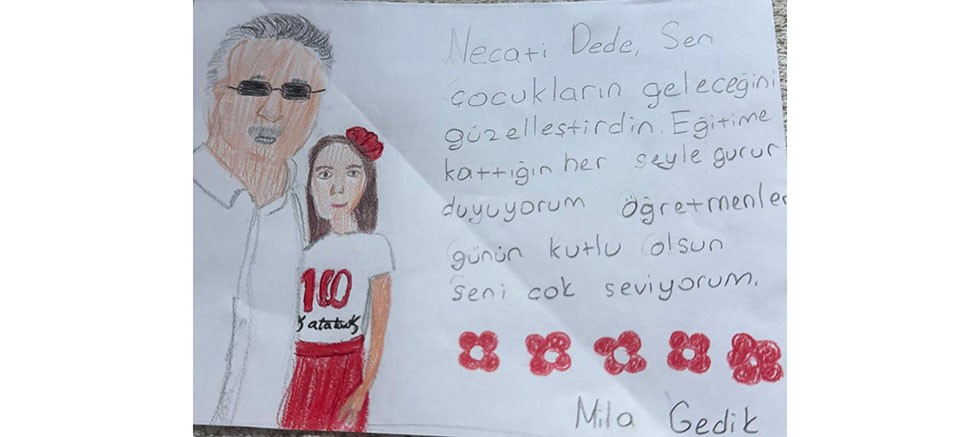 Necati Dede, Sen
çocukların geleceğini
güzelleştirdin. Eğitime
kattığın her şeyle gurur
duyuyorum öğretmenler
günün kutlu olsun
seni çok seviyorum.
Mila Gedik
100
K. atatürk